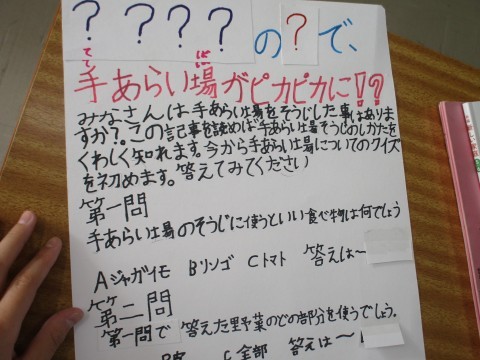 ? ???の?で、
手あらい場がピカピカに!?
みなさんは手あらい場をそうじした事はありま
すか?。この記事を読めば手あらい場そうじのしかたを
くわしく知れます。今から手あらい場についてのクイズ
を初めます。答えてみてください
第一問
手あらい場のそうじに使うといい食べ物は何でしょう
Aジャガイモ Bリンゴ Cトマト 答えは〜
第二問
第一問で答えた野菜のどの部分を使うでしょう。
C全部 答えは〜